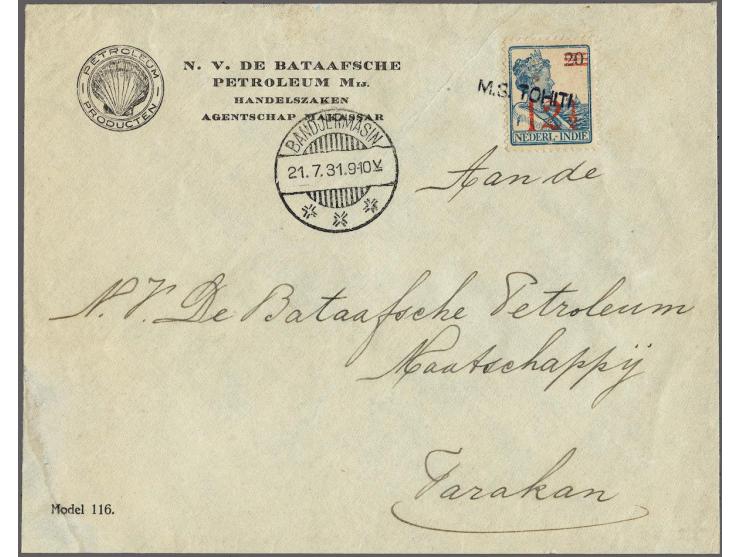 PETROLEUM
PRODUCTEN
N. V. DE BATAAFSCHE
PETROLEUM MIJ.
HANDELSZAKEN
AGENTSCHAP MAKASSAR
BANDJERMASIN
21.7.31.9-10V
20
M.S. TOHITI
12½
NEDERL-INDIE
Aan de
N.V. De Bataafsche Petroleum
Maatschappij
Tarakan
Model 116.